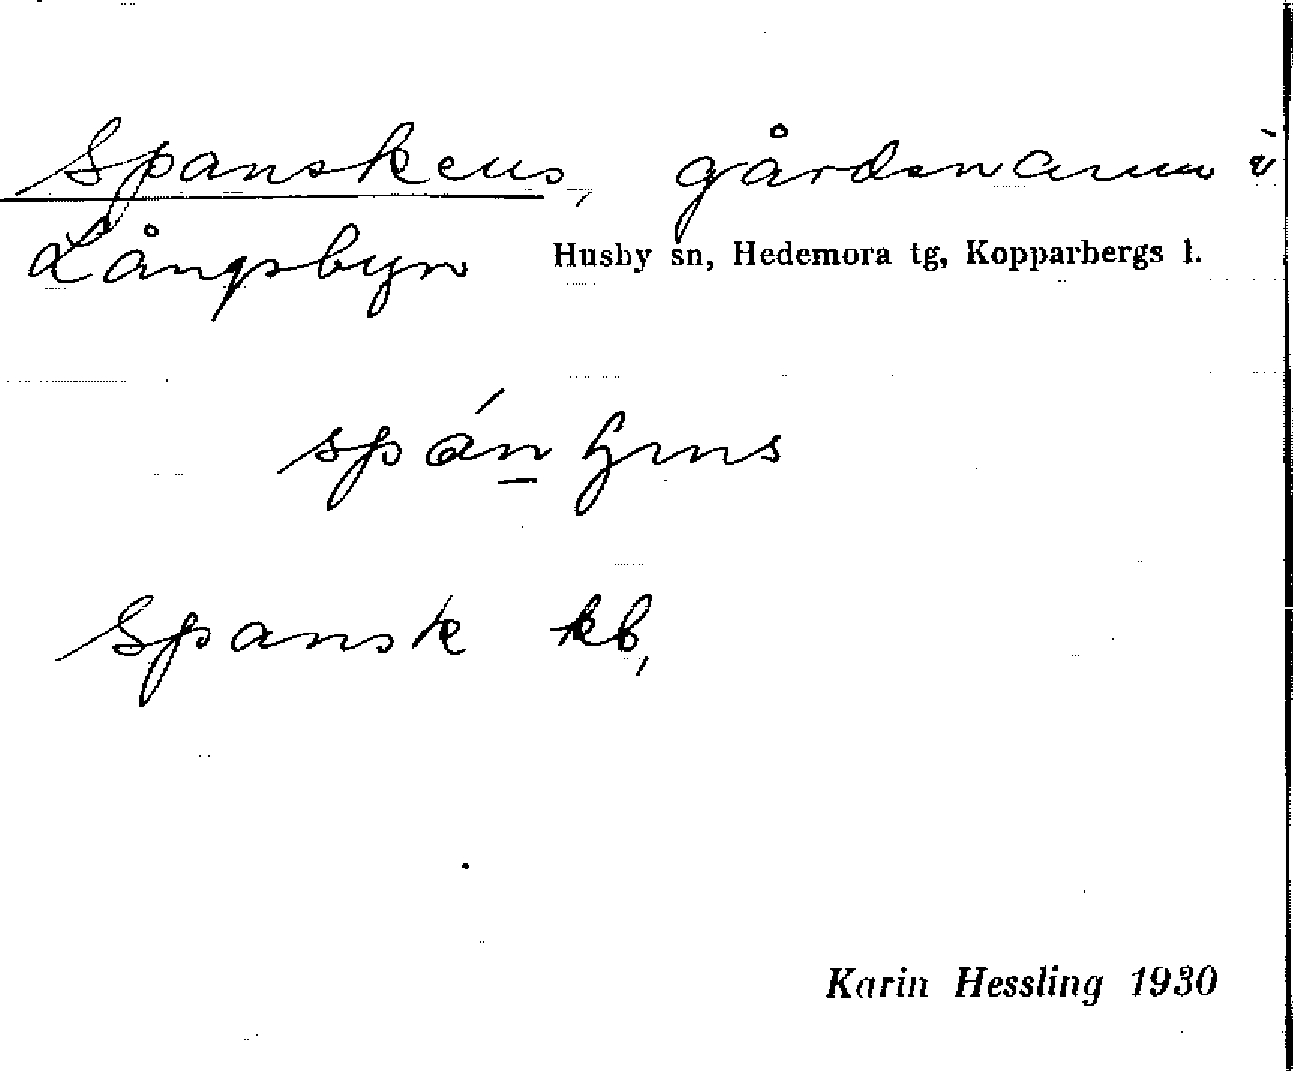 Spanskens, gårdsnamn i
Långsbyn Husby sn, Hedemora tg, Kopparbergs l.
Spansk kb,
Karin Hessling 1930